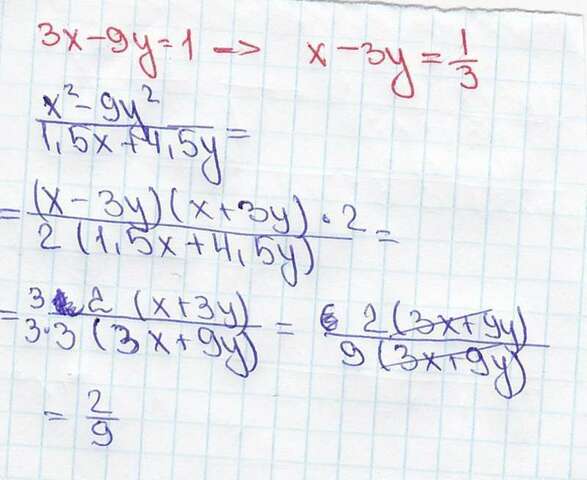 3x-9y=1 -> x-3y=1/3
(x²-9y²)/(1,5x+4,5y)=
=((x-3y)(x+3y)·2)/(2(1,5x+4,5y))=
=(3·2(x+3y))/(3·3(3x+9y))=(2(3x+9y))/(9(3x+9y))
=2/9